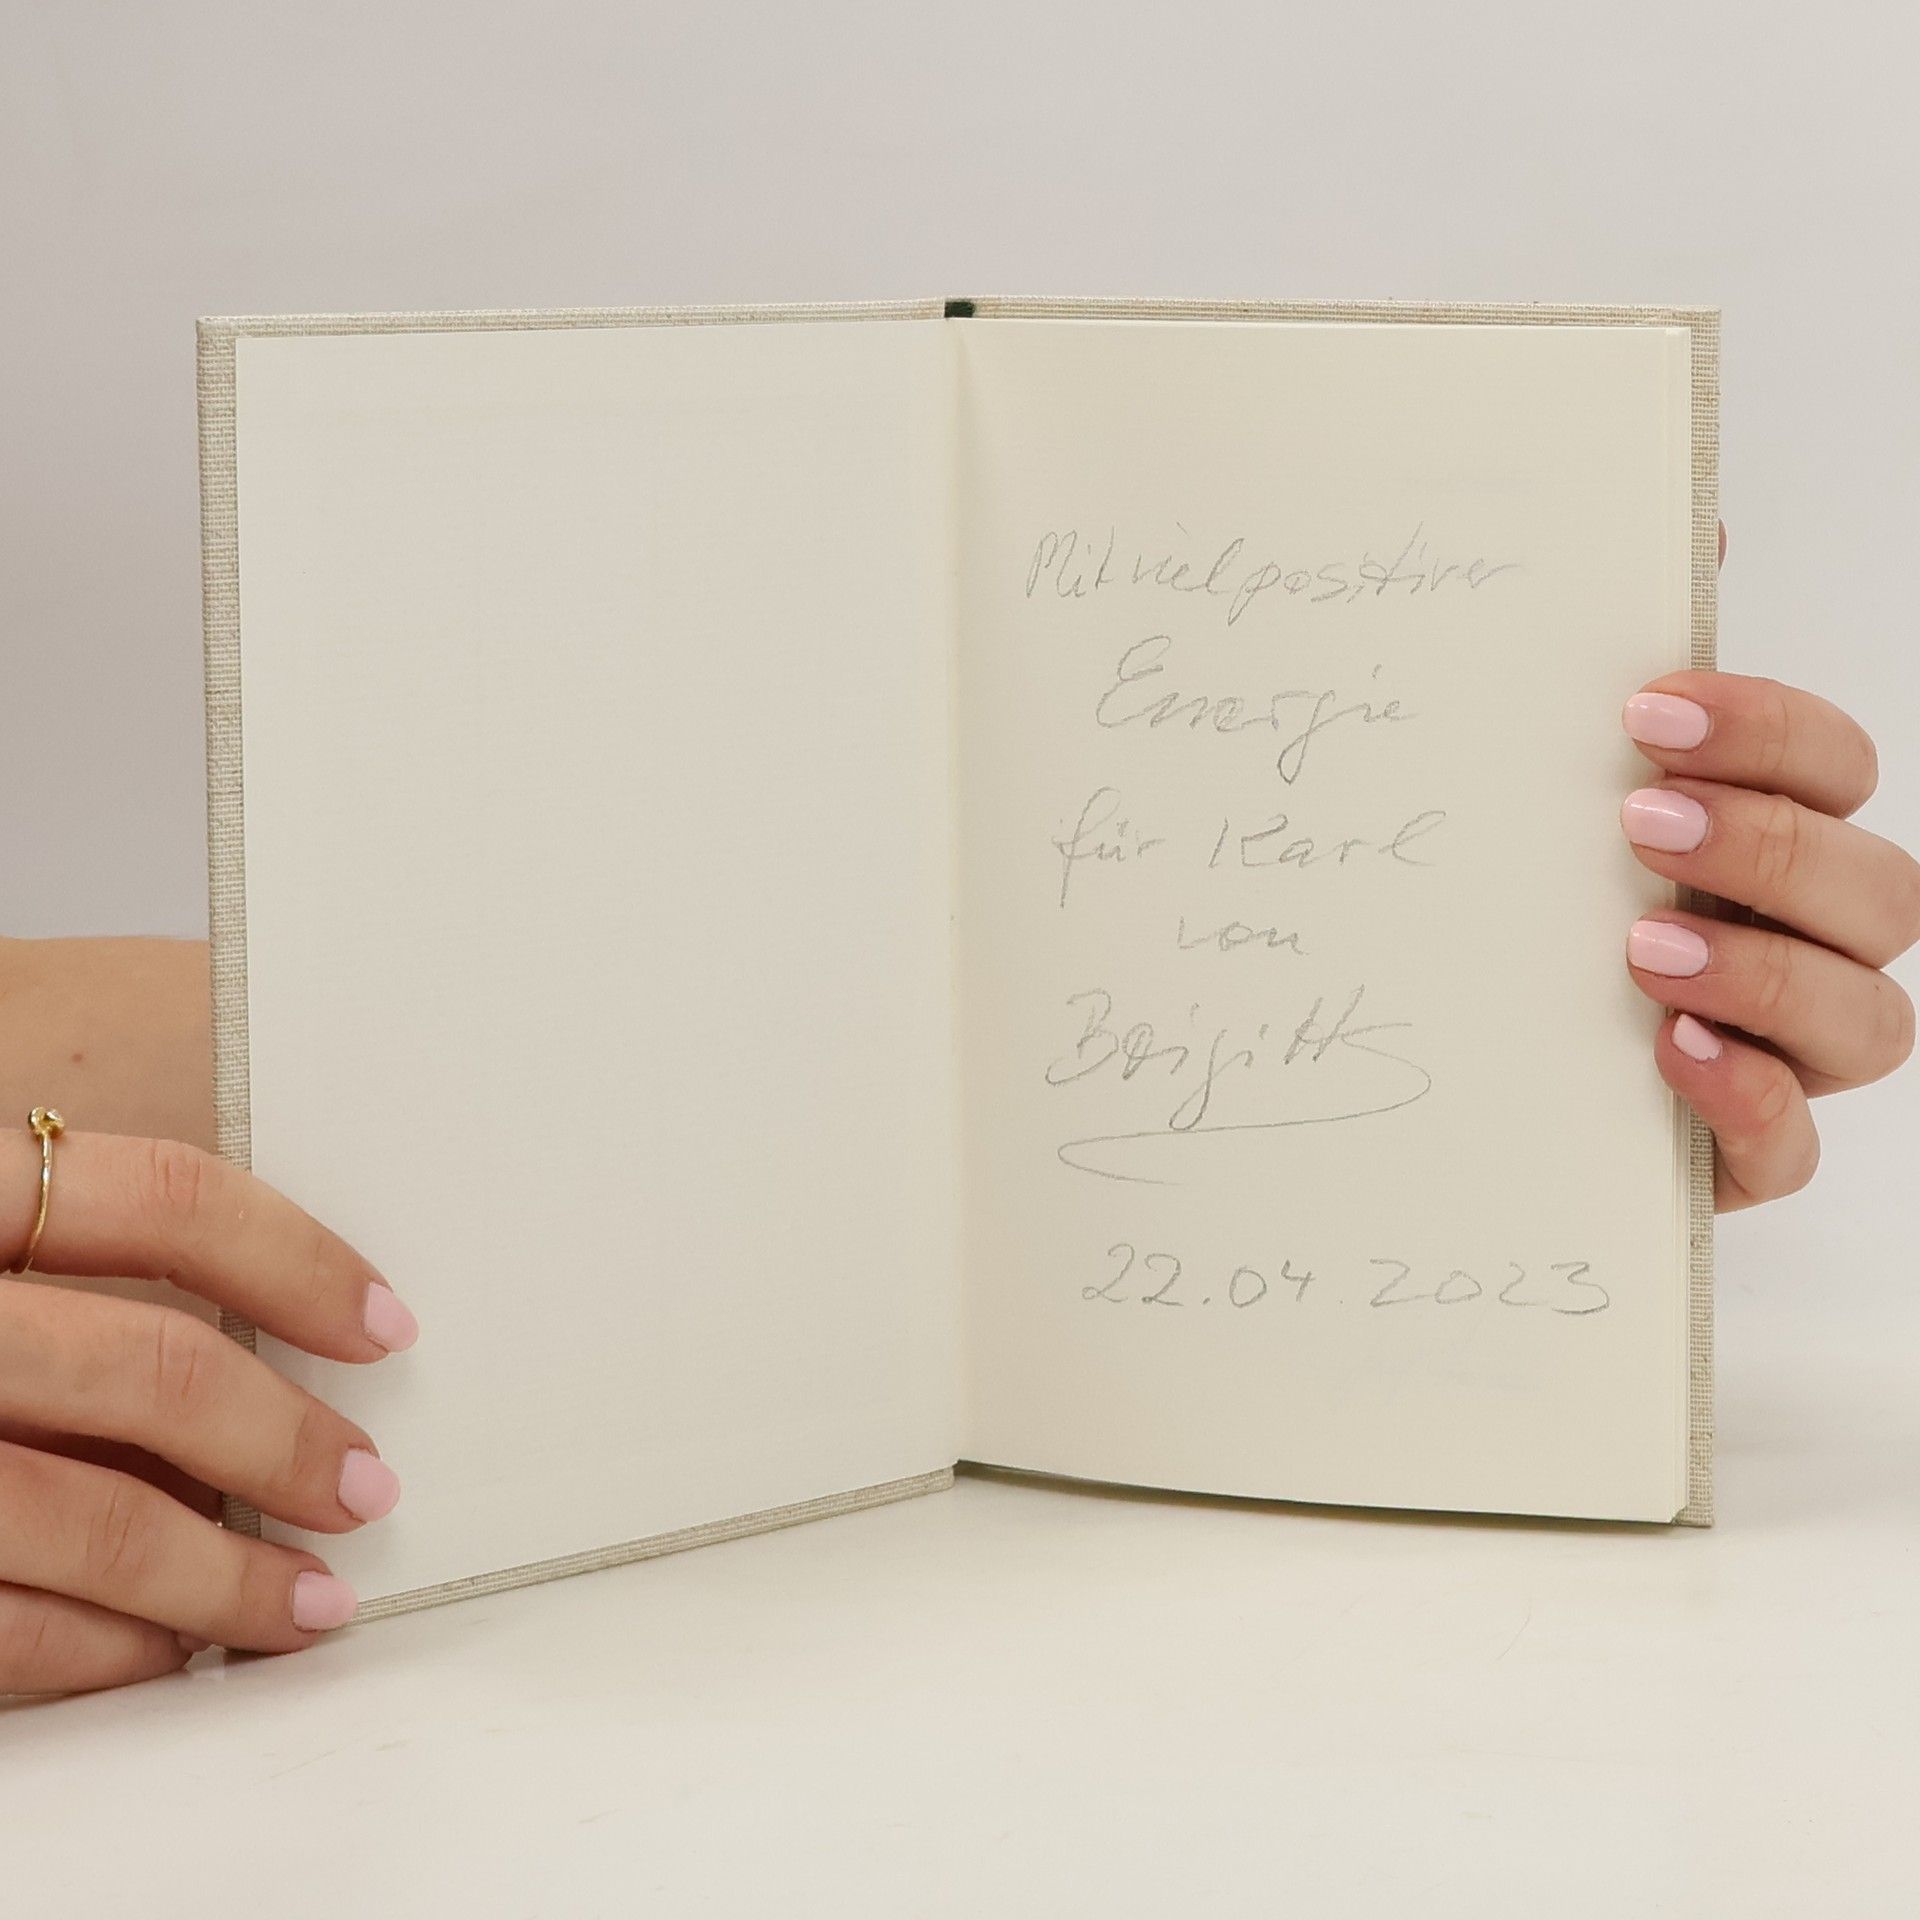 Mit viel positiver
Energie
für Karl
von
Brigitte
22.04.2023